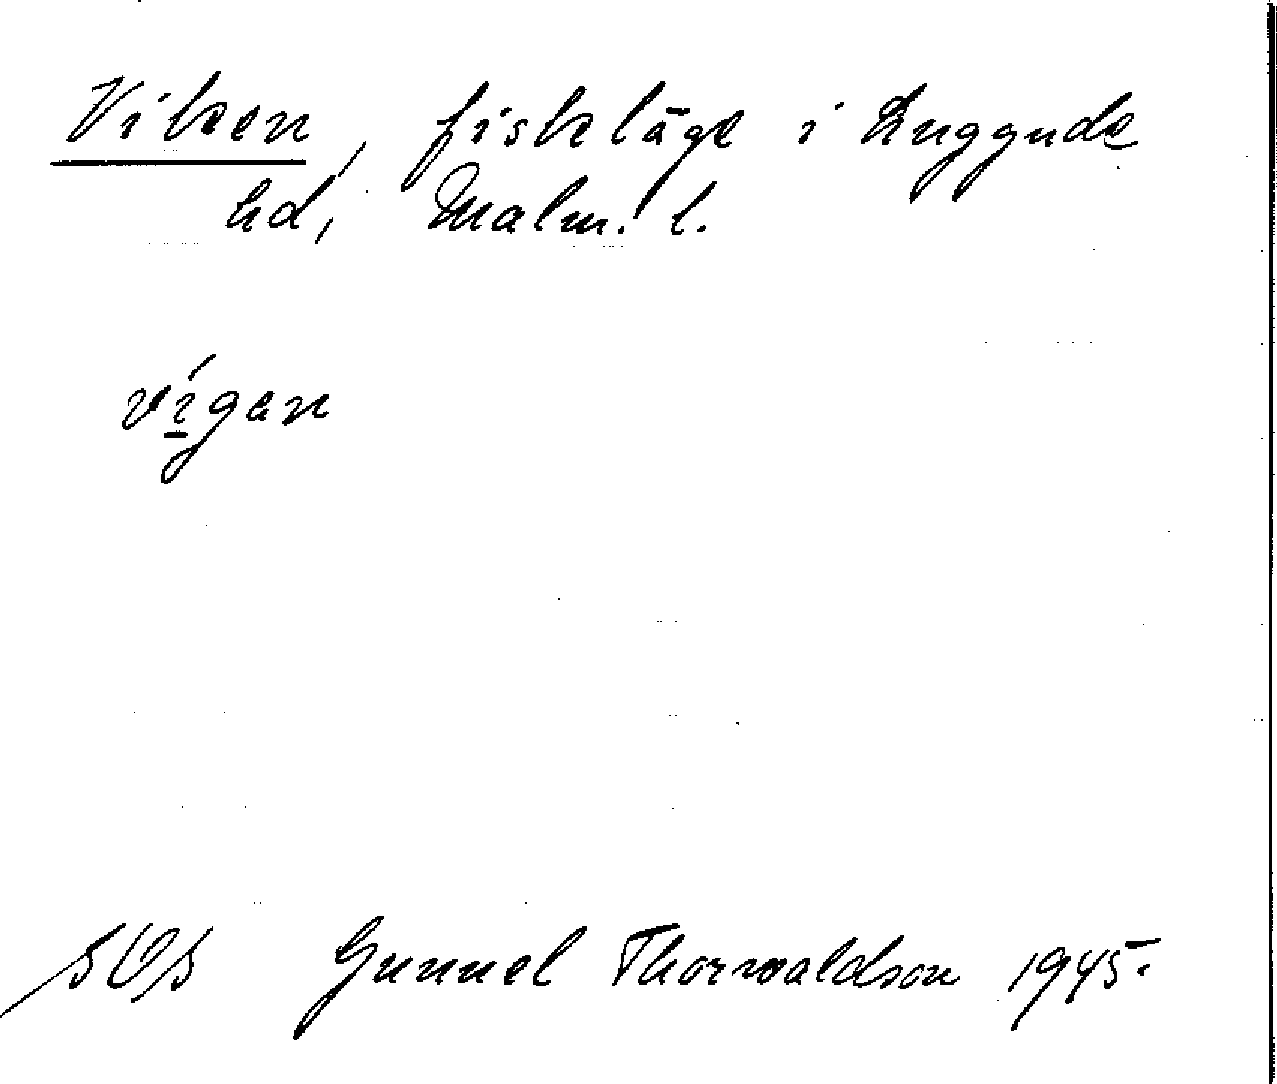 Viken, fiskläge i Luggude
hd, Malm. l.
vígan
SOS Gunnel Thorwaldson 1945.